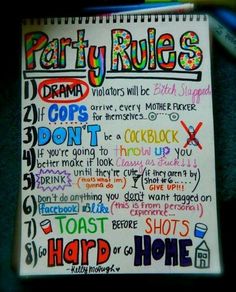 Party Rules
1) DRAMA violators will be Bitch Slapped
2) If COPS arrive, every MOTHER FUCKER
for themselves...
3) DON'T be a COCKBLOCK
4) if you're going to throw up you
better make it look Classy as Fuck!!!
5) DRINK until they're cute, if they aren't by
(that's what i'm gonna do) Shot #6.... GIVE UP!!!
6) Don't do anything you don't want tagged on
facebook like (this is from personal
experience...
7) TOAST BEFORE SHOTS
8) Go HARD or go HOME
-Kelly McHugh